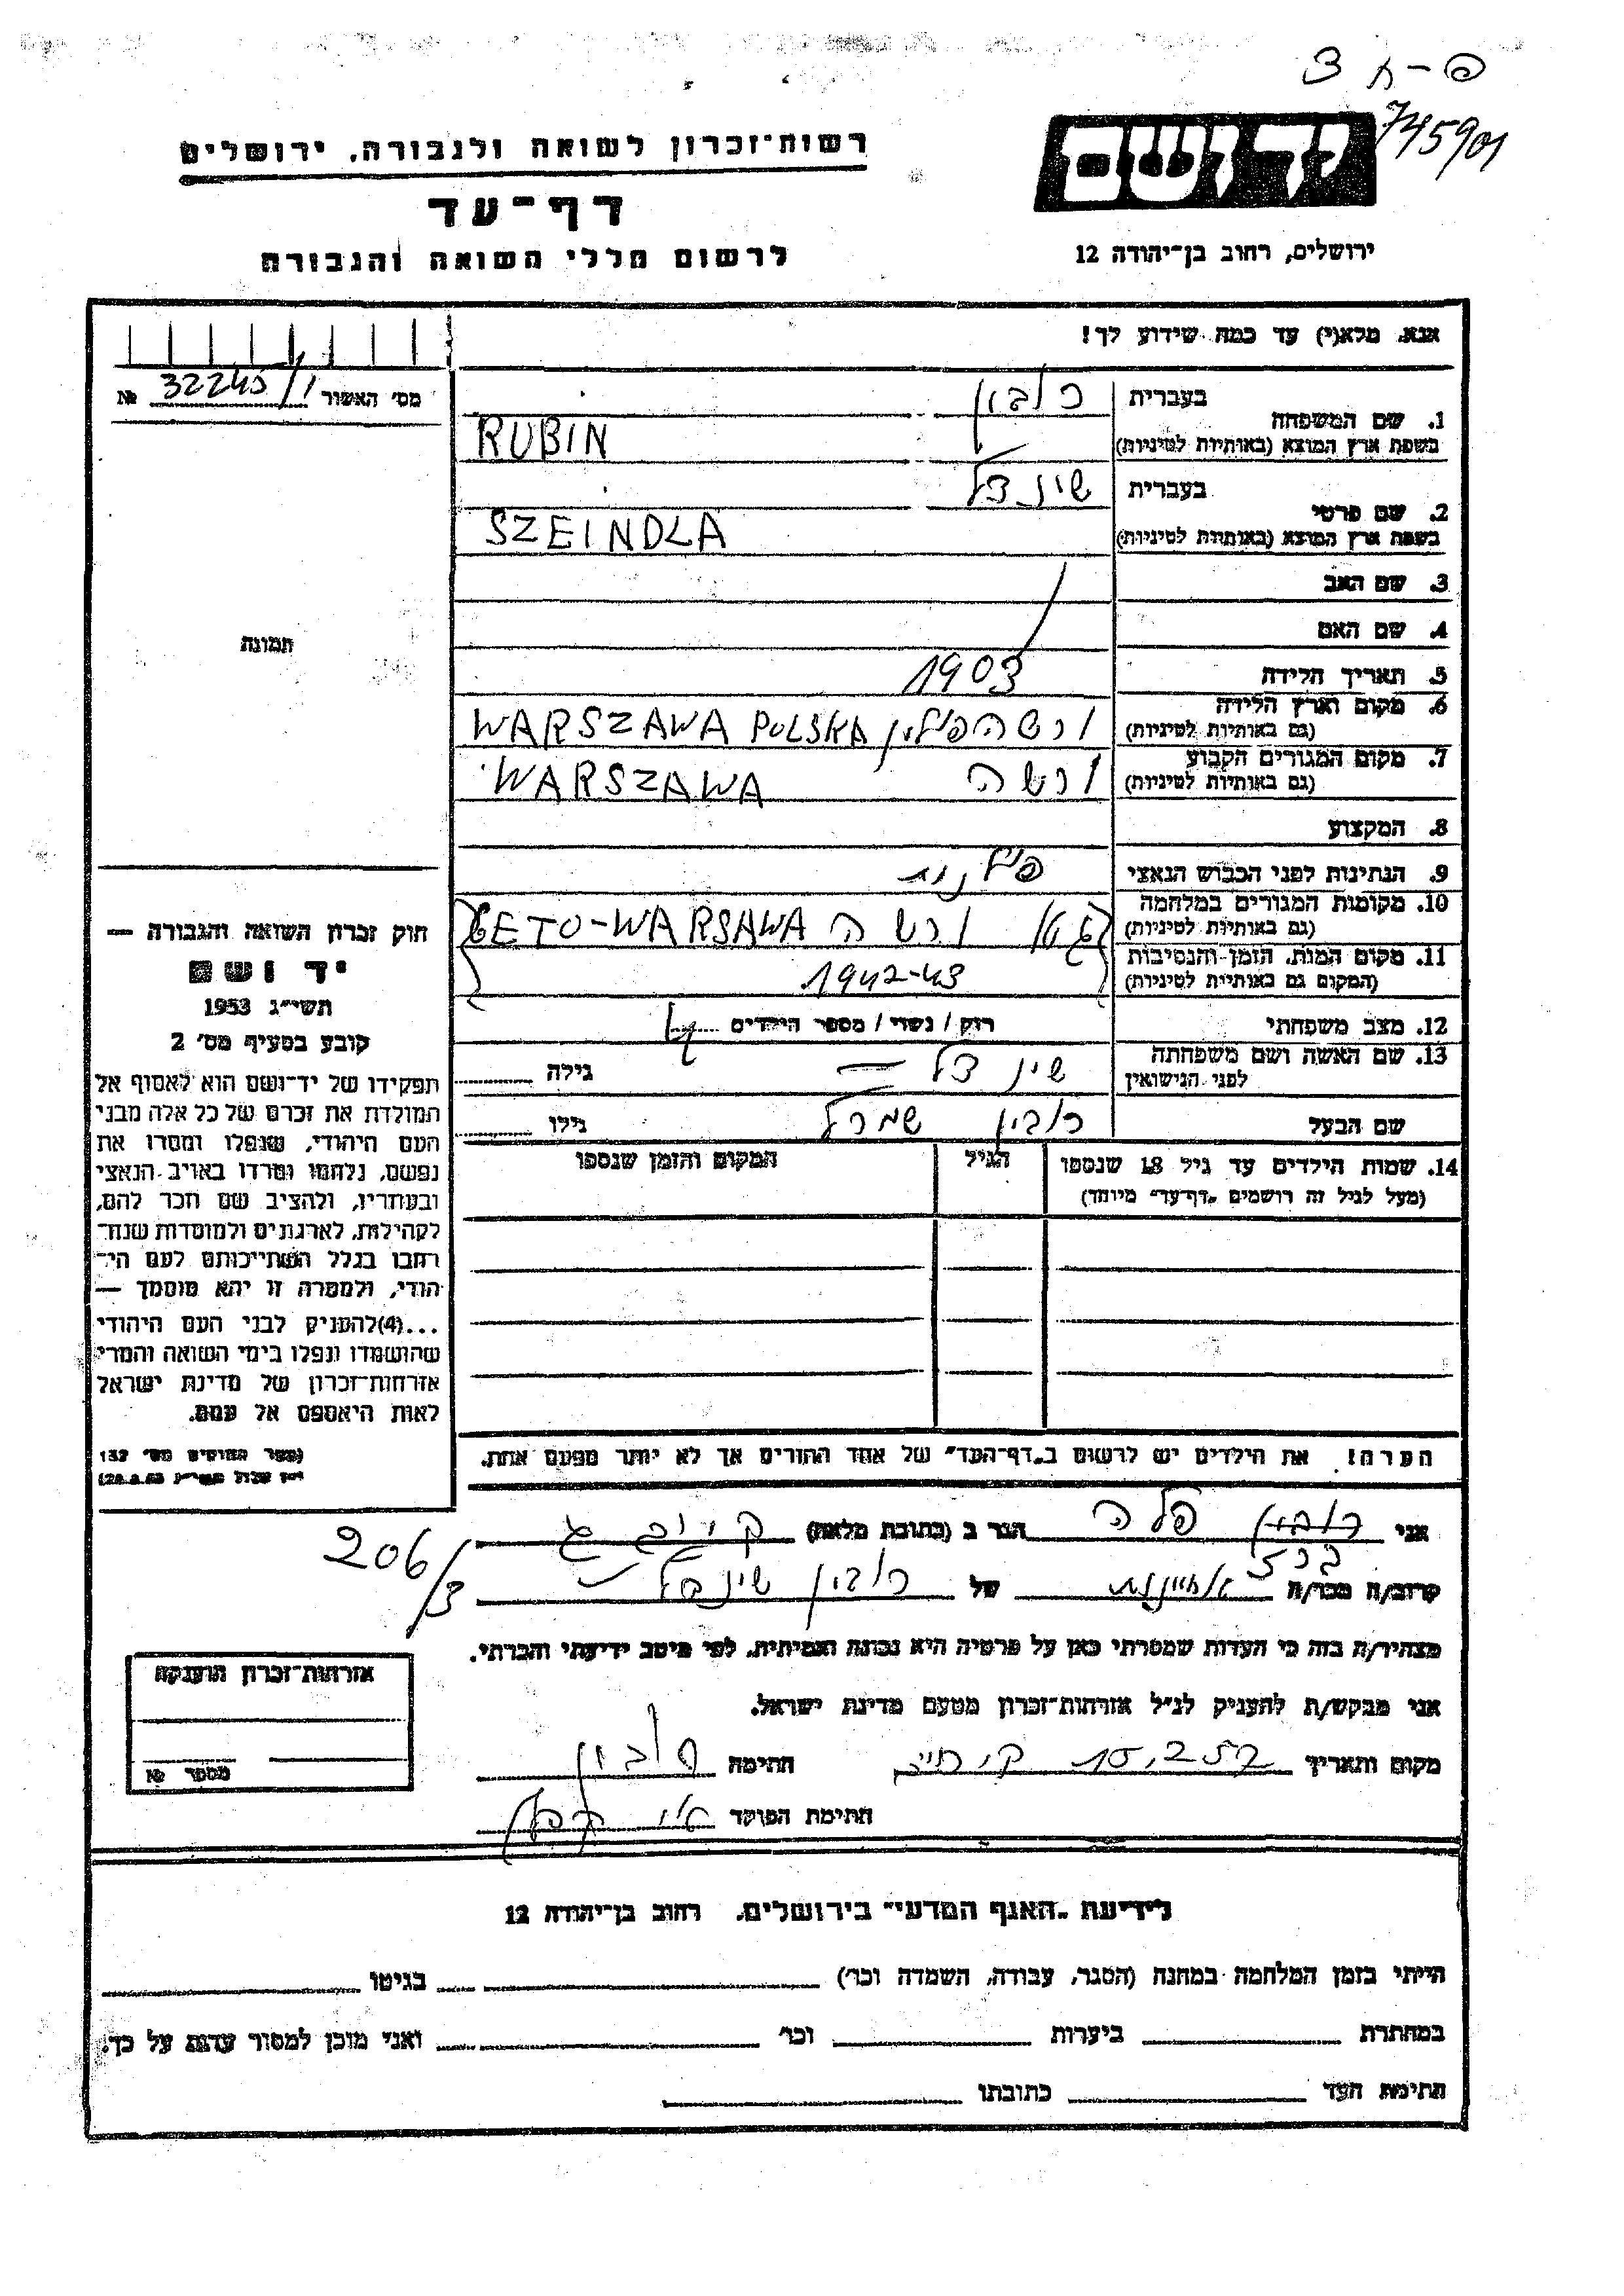 פ-ח 3
745901
יד ושם
רשות־זכרון לשואה ולגבורה, ירושלים
דף־עד
לרשום חללי השואה והגבורה
ירושלים, רחוב בן־יהודה 12
אנא, מלא(י) עד כמה שידוע לך!
מס׳ האשור 32245/1 №
1. שם המשפחה בעברית רובין
בשפת ארץ המוצא (באותיות לטיניות) RUBIN
2. שם פרטי בעברית שינדל
בשפת ארץ המוצא (באותיות לטיניות) SZEINDLA
3. שם האב
4. שם האם
תמונה
5. תאריך הלידה 1903
6. מקום וארץ הלידה (גם באותיות לטיניות) ורשה פולין WARSZAWA POLSKA
7. מקום המגורים הקבוע (גם באותיות לטיניות) ורשה WARSZAWA
8. המקצוע
9. הנתינות לפני הכבוש הנאצי
10. מקומות המגורים במלחמה (גם באותיות לטיניות) גטו ורשה GETO-WARSAWA
11. מקום המות, הזמן והנסיבות (המקום גם באותיות לטיניות) 1942-43
12. מצב משפחתי רוק / נשוי / מספר הילדים 4
13. שם האשה ושם משפחתה לפני הנישואין שינדל גילה
שם הבעל רובין שמרל גילו
14. שמות הילדים עד גיל 18 שנספו הגיל המקום והזמן שנספו
(מעל לגיל זה רושמים „דף־עד״ מיוחד)
חוק זכרון השואה והגבורה —
יד ושם
תשי״ג 1953
קובע בסעיף מס׳ 2
תפקידו של יד־ושם הוא לאסוף אל
המולדת את זכרם של כל אלה מבני
העם היהודי, שנפלו ומסרו את
נפשם, נלחמו ומרדו באויב הנאצי
ובעוזריו, ולהציב שם וזכר להם,
לקהילות, לארגונים ולמוסדות שנח־
רבו בגלל השתייכותם לעם הי־
הודי, ולמטרה זו יהא מוסמך —
...(4)להעניק לבני העם היהודי
שהושמדו ונפלו בימי השואה והמרי
אזרחות־זכרון של מדינת ישראל
לאות היאספם אל עמם.
(ספר החוקים מס׳ 132
הערה! את הילדים יש לרשום ב„דף־העד״ של אחד ההורים אך לא יותר מפעם אחת.
אני רובין פלה הגר ב (כתובת מלאה)
קרוב/ה מכר/ה של רובין שינדל
206/3
מצהיר/ה בזה כי העדות שמסרתי כאן על פרטיה היא נכונה ואמיתית, לפי מיטב ידיעתי והכרתי.
אני מבקש/ת להעניק לנ״ל אזרחות־זכרון מטעם מדינת ישראל.
אזרחות־זכרון הוענקה
מספר №
מקום ותאריך חתימה רובין
חתימת הפוקד
לידיעת „האגף המדעי״ בירושלים, רחוב בן־יהודה 12
הייתי בזמן המלחמה במחנה (הסגר, עבודה, השמדה וכו׳) בגיטו
במחתרת ביערות וכו׳ ואני מוכן למסור עדות על כך.
חתימת העד כתובתו